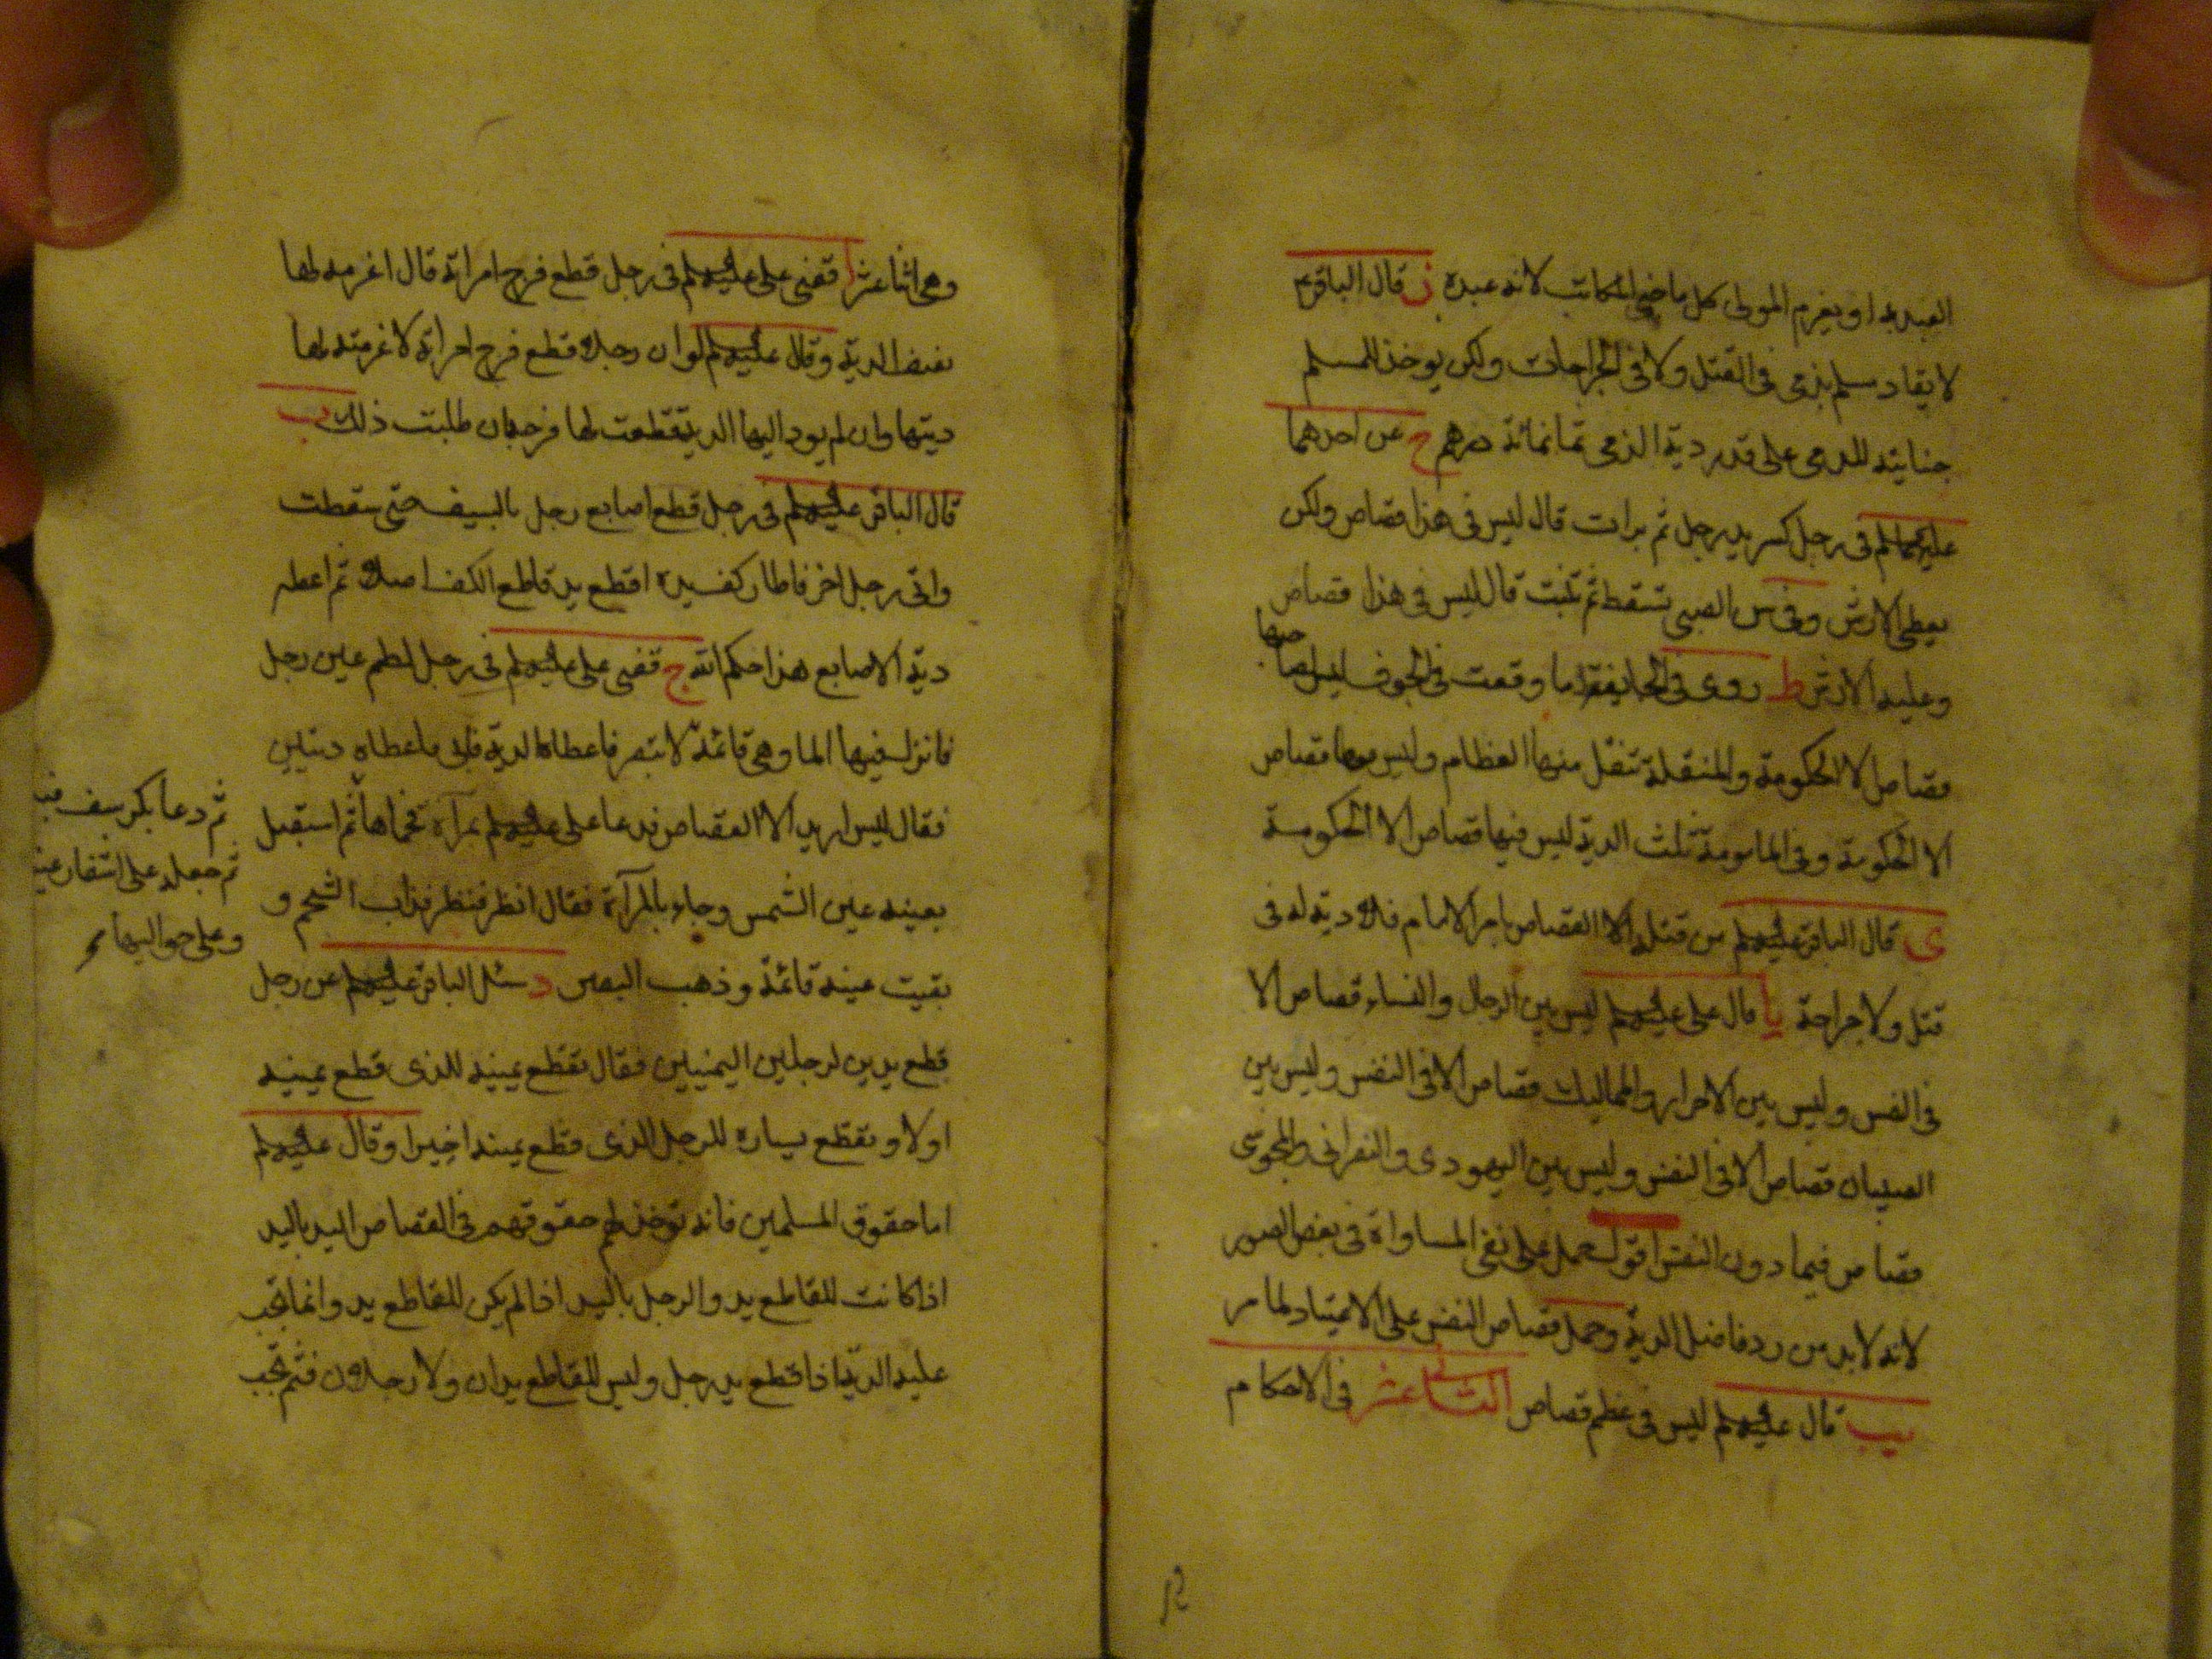 العبد يدا ويغرم المولى كل ما جنى المكاتب لانه عبده ز قال الباقر ع
لا يقاد مسلم بذمى فى القتل ولا فى الجراحات ولكن يوخذ للمسلم
جنايته للذمى على قدر دية الذمى ثمانمائة درهم ح عن احدهما
عليهما السلم فى رجل كسر يد رجل ثم برات قال ليس فى هذا قصاص ولكن
يعطى الارش وفى سن الصبى تسقط ثم تنبت قال ليس فى هذا قصاص
وعليه الارش ط روى فى الجايفة ما وقعت فى الجوف ليس لصاحبها
قصاص الا الحكومة والمنقلة تنقل منها العظام وليس فيها قصاص
الا الحكومة وفى المامومة ثلث الدية ليس فيها قصاص الا الحكومة
ى قال الباقر عليه السلم من قتله القصاص بامر الامام فلا دية له فى
قتل ولا جراحة يا قال على عليه السلم ليس بين الرجال والنساء قصاص الا
فى النفس وليس بين الاحرار والمماليك قصاص الا فى النفس وليس بين
الصبيان قصاص الا فى النفس وليس بين اليهودى والنصرانى والمجوسى
قصاص فيما دون النفس اقول حمل على نفى المساواة فى بعض الصور
لانه لابد من رد فاضل الدية وحمل قصاص النفس على الاعتياد لما مر
يب قال عليه السلم ليس فى عظم قصاص الثانى عشر فى الاحكام
وهى اثنا عشر ا قضى على عليه السلم فى رجل قطع فرج امراة قال اغرمه لها
نصف الدية وقال عليه السلم لو ان رجلا قطع فرج امراة لاغرمته لها
ديتها وان لم يود اليها الدية قطعت لها فرجه ان طلبت ذلك ب
قال الباقر عليه السلم فى رجل قطع اصابع رجل بالسيف حتى سقطت
واتى رجل اخر فاطار كف يده اقطع يد قاطع الكف اصلا ثم اعطه
دية الاصابع هذا حكم الله ج قضى على عليه السلم فى رجل لطم عين رجل
فانزل فيها الما وهى قائمة لا تبصر فاعطاه الدية فابى فاعطاه ديتين
فقال ليس اريد الا القصاص فدعا على عليه السلم بمرآة فحماها ثم استقبل
بعينه عين الشمس وجاء بالمرآة فقال انظر فنظر فذاب الشحم و
بقيت عينه قائمة وذهب البصر د سئل الباقر عليه السلم عن رجل
قطع يدين لرجلين اليمينين فقال تقطع يمينه للذى قطع يمينه
اولا وتقطع يساره للرجل الذى قطع يمينه اخيرا وقال عليه السلم
اما حقوق المسلمين فانه توخذ لهم حقوقهم فى القصاص اليد باليد
اذا كانت للقاطع يد والرجل باليد اذا لم يكن للقاطع يد وانما تجب
عليه الدية اذا قطع يد رجل وليس للقاطع يدان ولا رجلان فثم تجب
ثم دعا بكرسف
ثم جعله على اشفار عينه
وعلى حواليها